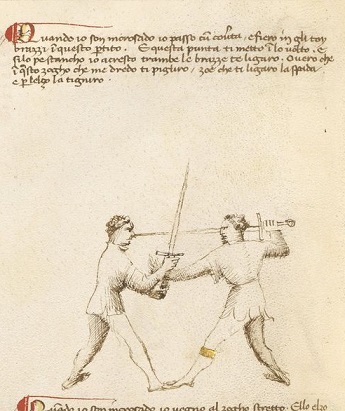 Quando io son incrosado io passo cũ couerta, e fiero in gli toy
brazzi i questo ptito. E questa punta ti metto ĩ lo uolto. E
si lo pe stancho io acresto trambe le brazze te ligaro. Ouero che
ĩ q̃sto zogho che me dredo ti pigliro, zoe che ti ligaro la spada
e p lelço la tignuro.
Quãdo io son incrosado io uegno al zogho stretto. E llo elzo